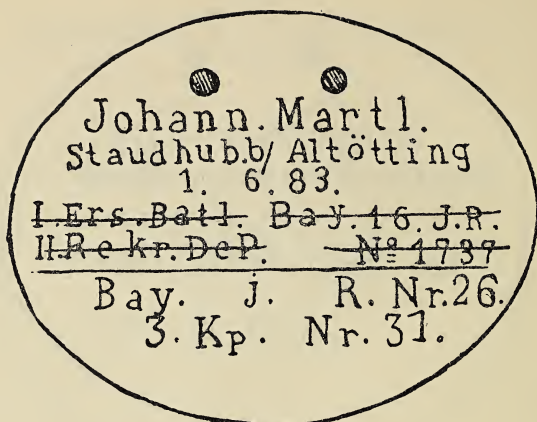 Johann. Martl.
Staudhub.b/ Altötting
1. 6. 83.
I.Ers.Batl. Bay.16.J.R.
II.Rekr.DeP. Nº 1737
Bay. J. R. Nr.26.
3. Kp. Nr. 31.